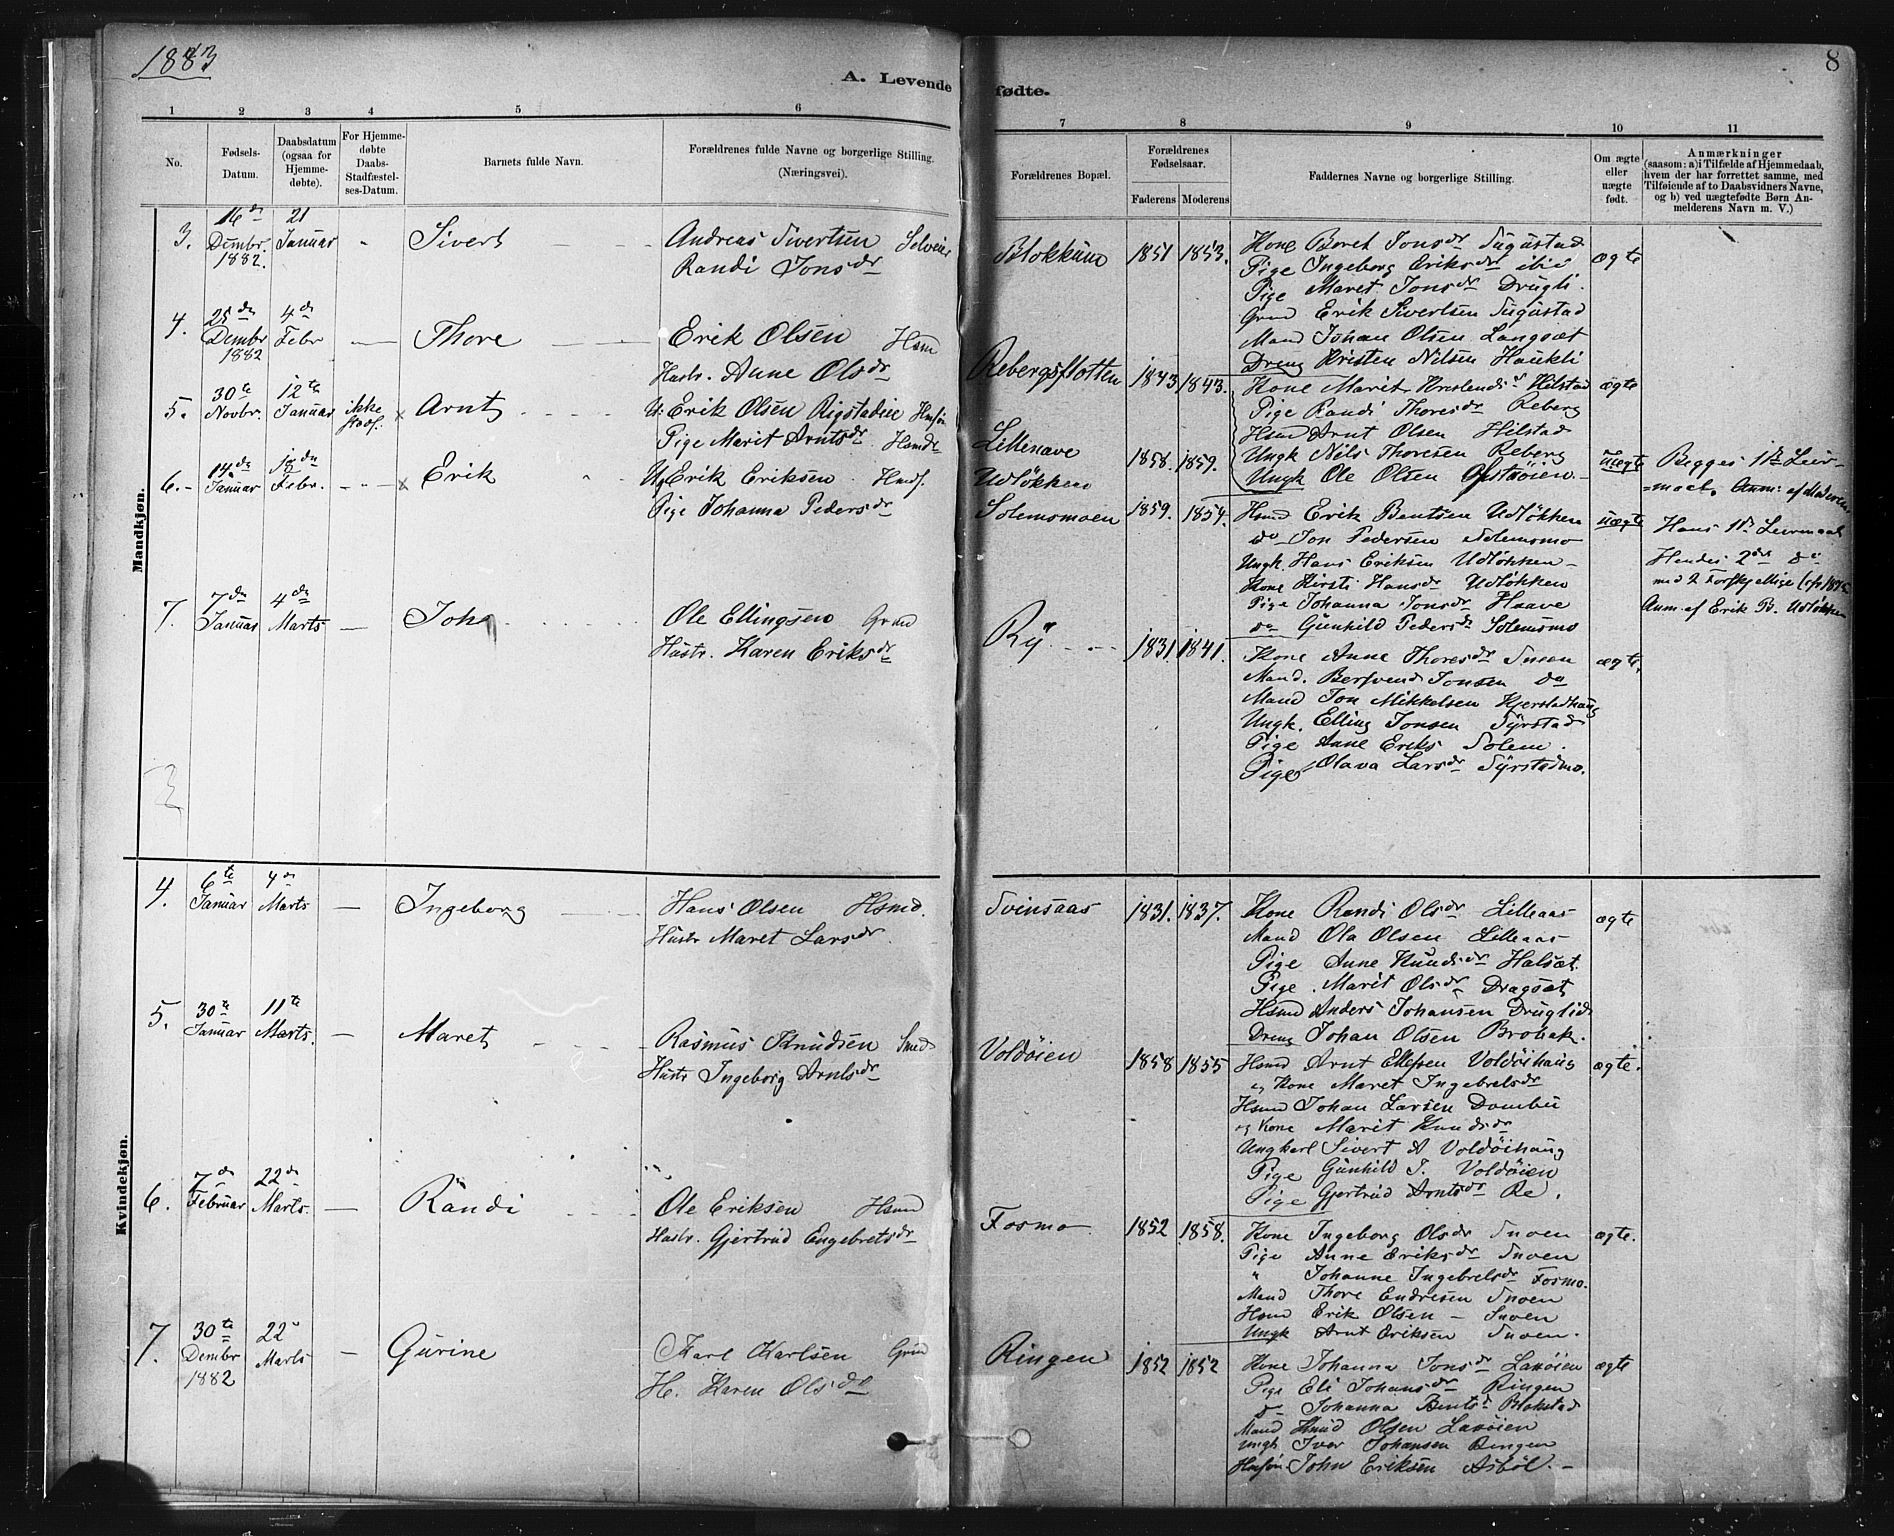 1883
8
A. Levende fødte.
1 2 3 4 5 6 7 8 9 10 11
No.
Fødsels-Datum.
Daabsdatum (ogsaa for Hjemme-døbte).
For Hjemme-døbte Daabs-Stadfæstel-ses-Datum.
Barnets fulde Navn.
Forældrenes fulde Navne og borgerlige Stilling. (Næringsvei).
Forældrenes Bopæl.
Forældrenes Fødselsaar.
Faderens Moderens
Faddernes Navne og borgerlige Stilling.
Om ægte eller uægte født.
Anmærkninger
(saasom: a) i Tilfælde af Hjemmedaab, hvem der har forrettet samme, med Tilføiende af to Daabsvidners Navne, og b) ved uægtefødte Børn Anmelderens Navn m. V.)
Mandkjøn.
3. 16de Dembr. 1882. 21 Januar Sivert
Andreas Sivertsen Selveier
Randi Jonsdr
Blokkum 1851 1853.
Kone Beret Jonsdr Sugustad
Pige Ingeborg Eriksdr ibid
Pige Maret Jonsdr Drugli.
Grmd Erik Sivertsen Sugustad
Mand Johan Olsen Langsæt
Dreng Kristen Nilsen Haukli
ægte
4. 25de Dembr 1882 4de Febr Thore
Erik Olsen Hsm
Hustr. Anne Olsdr
Rebergsflotten 1843 1843.
Kone Marit Hilstad
Pige Randi Thoresdr Reberg
Hsmd Arnt Olsen Hilstad
Ungk Nils Thoresen Reberg
Ungk Ole Olsen Opstøien.
ægte
5. 30te Novbr. 12te Januar ikke stadf. x Arnt
U: Erik Olsen Rigstadeie Hmsøn
Pige Marit Arntsdr Hsmdt
Lillenave
1858. 1859.
uægte
Begges 1ste Leier-
=maal. Anm: af Moderen
6. 14de Januar 18de Febr. x Erik
U. Erik Eriksen Hmdf.
Pige Johanna Pedersdr
Udløkken
Solemsmoen 1859. 1854.
Hsmd Erik Bentsen Udløkken
do Jon Pedersen Solemsmo
Ungk. Hans Eriksen Udløkken
Kone Kirsti Hansdr Udløkken
Pige Johanna Jonsdr Haave
do Gunhild Pedersdr Solemsmo
uægte
Hans 1ste Leiermaal
Hendes 2det do
med 2 Forskjellige
Anm. af Erik B. Udløkken
7. 7de Januar 4de Marts John
Ole Ellingsen Grmd
Hustr. Karen Eriksdr
Ry 1831 1841.
Kone Anne Thoresdr Snoen
Mand. Bersvend Jonsen do
Mand Jon Mikkelsen Kjerstadhaug
Ungk. Elling Jonsen Syrstad
Pige Anne Eriks Solem.
Pige Olava Larsdr Syrstadmo.
ægte.
3
Kvindekjøn.
4. 6te Januar 4de Marts Ingeborg
Hans Olsen Hsmd.
Hustr Maret Larsdr.
Svinsaas 1831. 1837.
Kone Randi Olsdr Lilleaas
Mand Ola Olsen Lilleaas
Pige Anne Knudsdr Halsæt.
Pige Marit Olsdr Dragsæt
Hsmd Anders Johansen Druglid
Dreng Johan Olsen Brobak.
ægte
5. 30te Januar 11te Marts. Maret
Rasmus Knudsen Smed
Hustr Ingeborg Arntsdr
Voldøien 1858 1855
Hsmd Arnt Ellefsen Voldøihaug
og Kone Maret Ingebretsdr
Hsmd Johan Larsen Dombu
og Kone Marit Knudsdr
Ungkarl Sivert A Voldøihaug
Pige Gunhild J. Voldøien
Pige Gjertrud Arntsdr Re.
ægte.
6. 7de Februar 22de Marts. Randi
Ole Eriksen Hsmd
Hustr. Gjertrud Engebretsdr
Fosmo 1852 1858.
Kone Ingeborg Olsdr Snoen
Pige Anne Eriksdr Snoen
" Johanne Ingebretsdr Fosmo.
Mand Thore Endresen Snoen
Hsmd Erik Olsen - Snoen
Ungk Arnt Eriksen Snoen.
ægte.
7. 30te Dembr 1882 22de Marts Gurine
Karl Karlsen Grmd
H. Karen Olsdr
Ringen 1852 1852
Kone Johanna Jonsdr Laxøien
Pige Eli Johansdr Ringen
do Johanna Bentsd Blokstad
Mand Knud Olsen Laxøien
Ungk Iver Johansen Ringen
Hmsøn John Eriksen Asbøl.
ægte